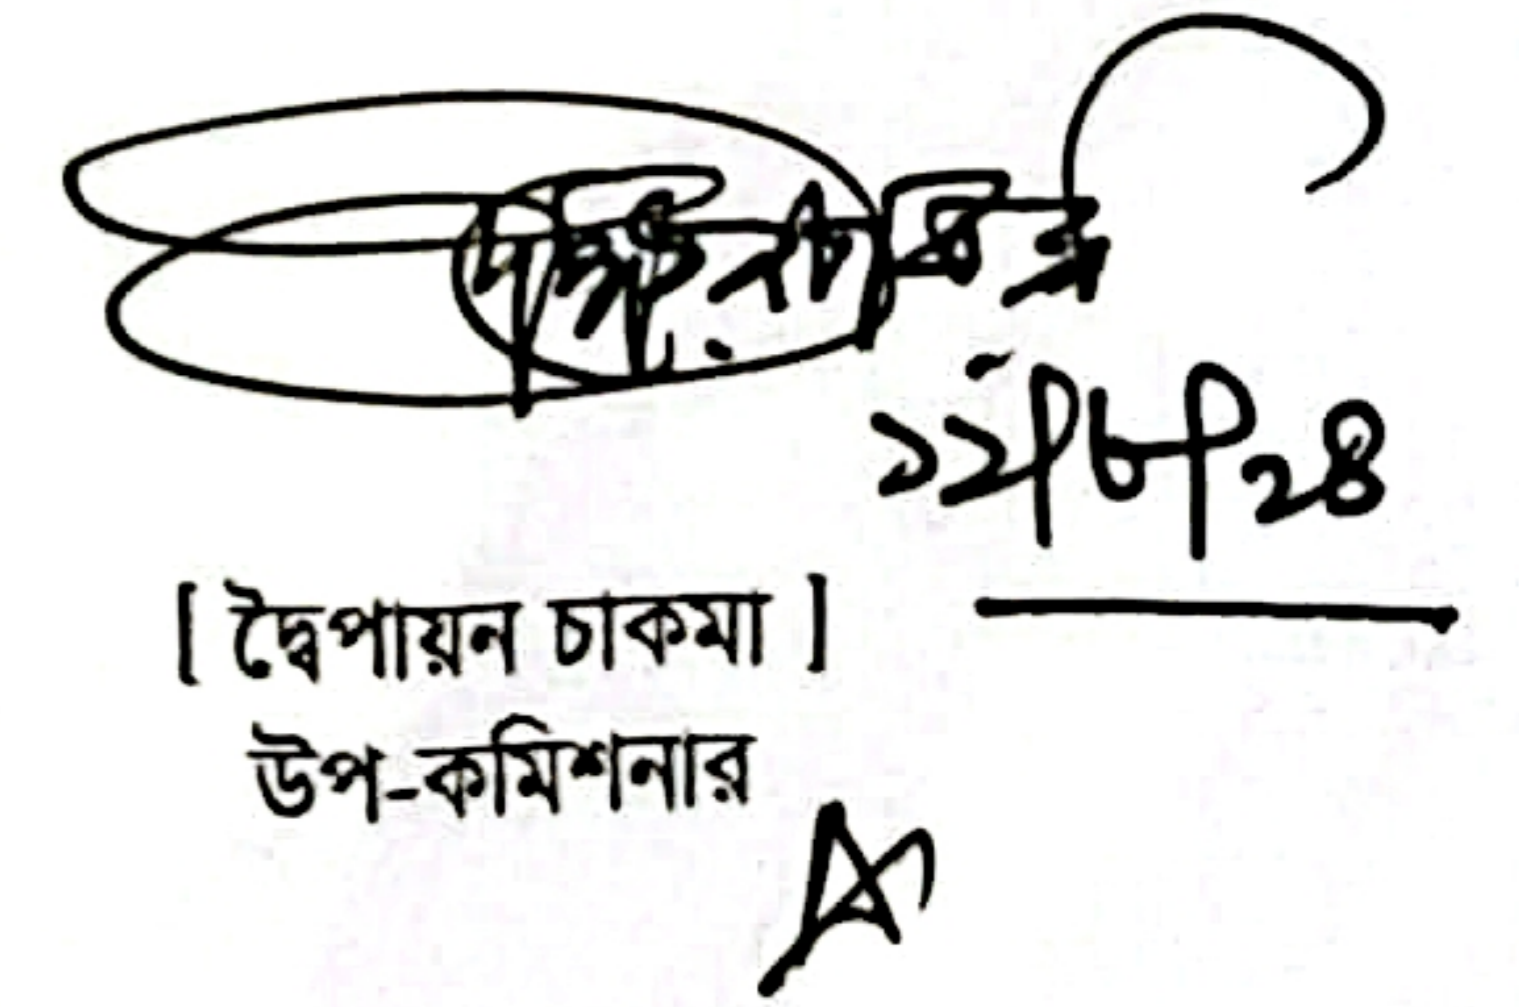 ১২/৮/২৪
[ দ্বৈপায়ন চাকমা ]
উপ-কমিশনার